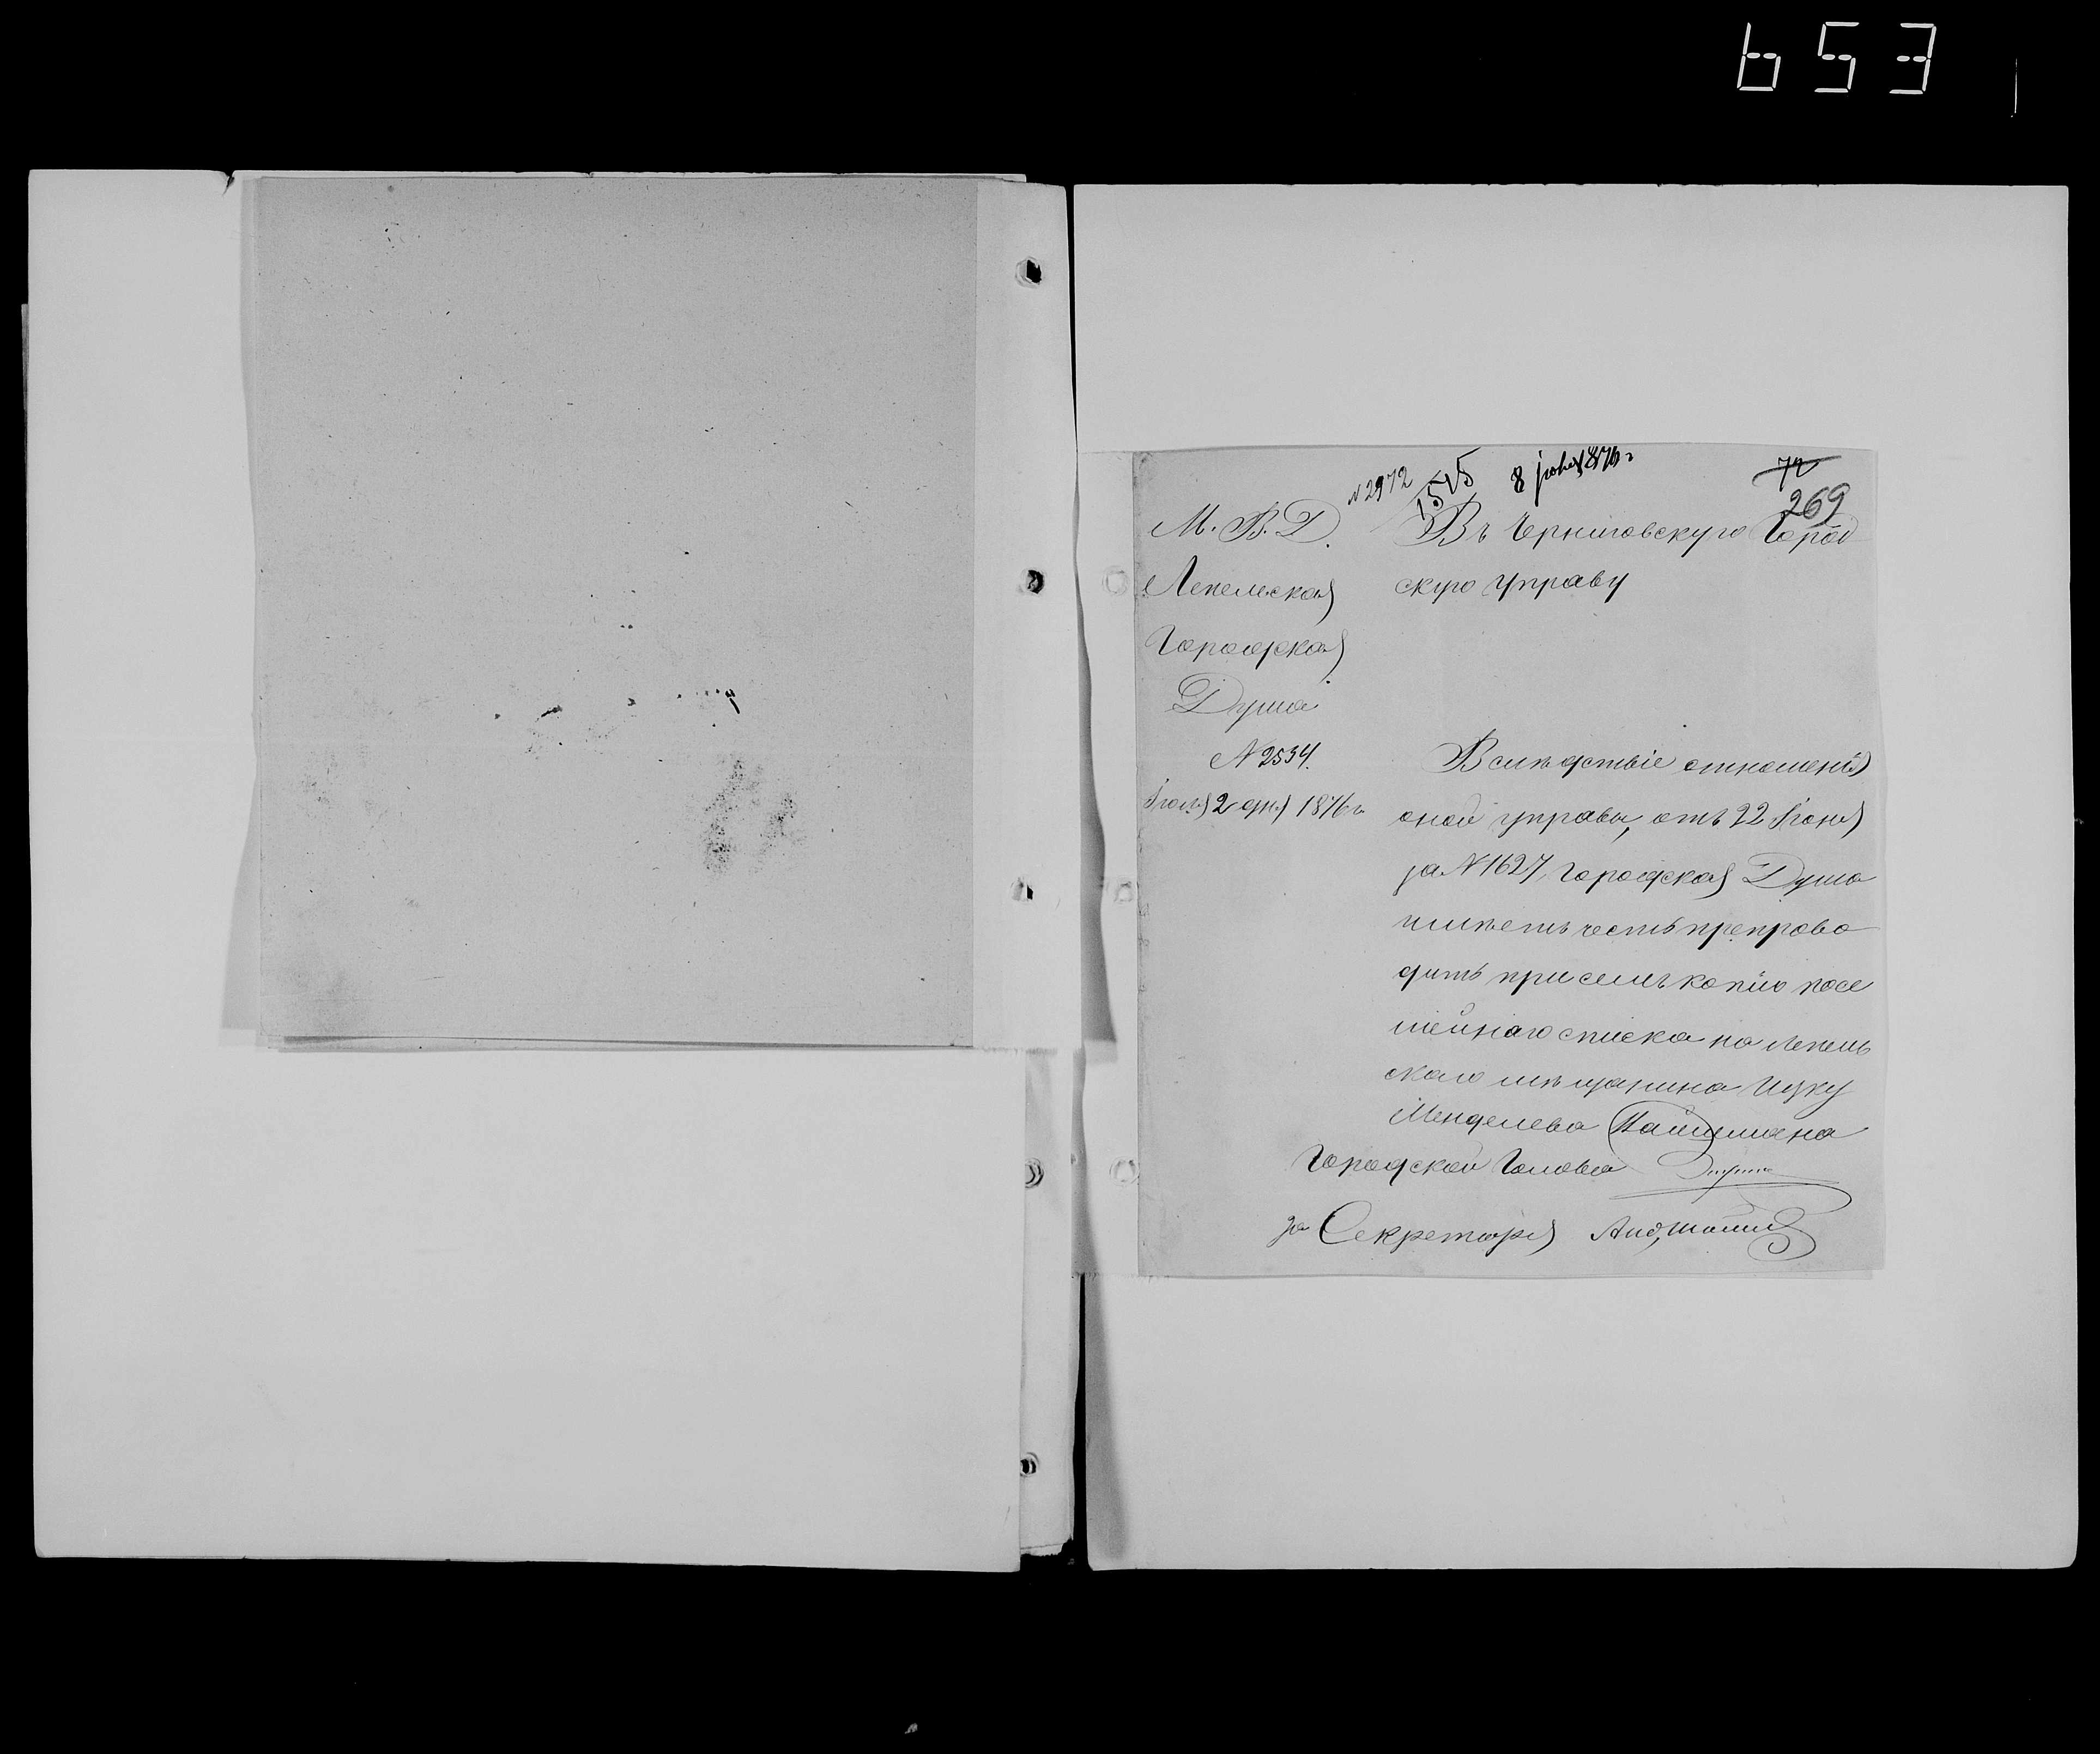 653
№ 2972
1515
8 июля 1876 г
72
269
М. В. Д.
Лепельская
Городская
Дума
№ 2534.
Іюля 2 дня 1876 г.
Въ Черниговскую Город
скую управу
Вслѣдствіе отношенія
оной управы, отъ 22 Іюня
за № 1627, Городская Дума
имѣетъ честь препрово
дить при семъ копію посе
мейнаго списка на лепель
скаго мѣщанина Ицку
Менделева Наймана
Городской Голова
за Секретаря